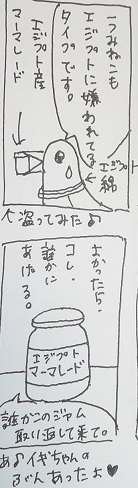 うみねこも
エジプトに嫌われてる
タイプです。
エジプト綿
エジプト産
マーマレード
盗ってみた♪
よかったら、
コレ、
誰かに
あげる。
エジプト
マーマレード
誰かこのジャム
取り返して来て。
あ♪イギちゃんの
ぶんあったよ♥